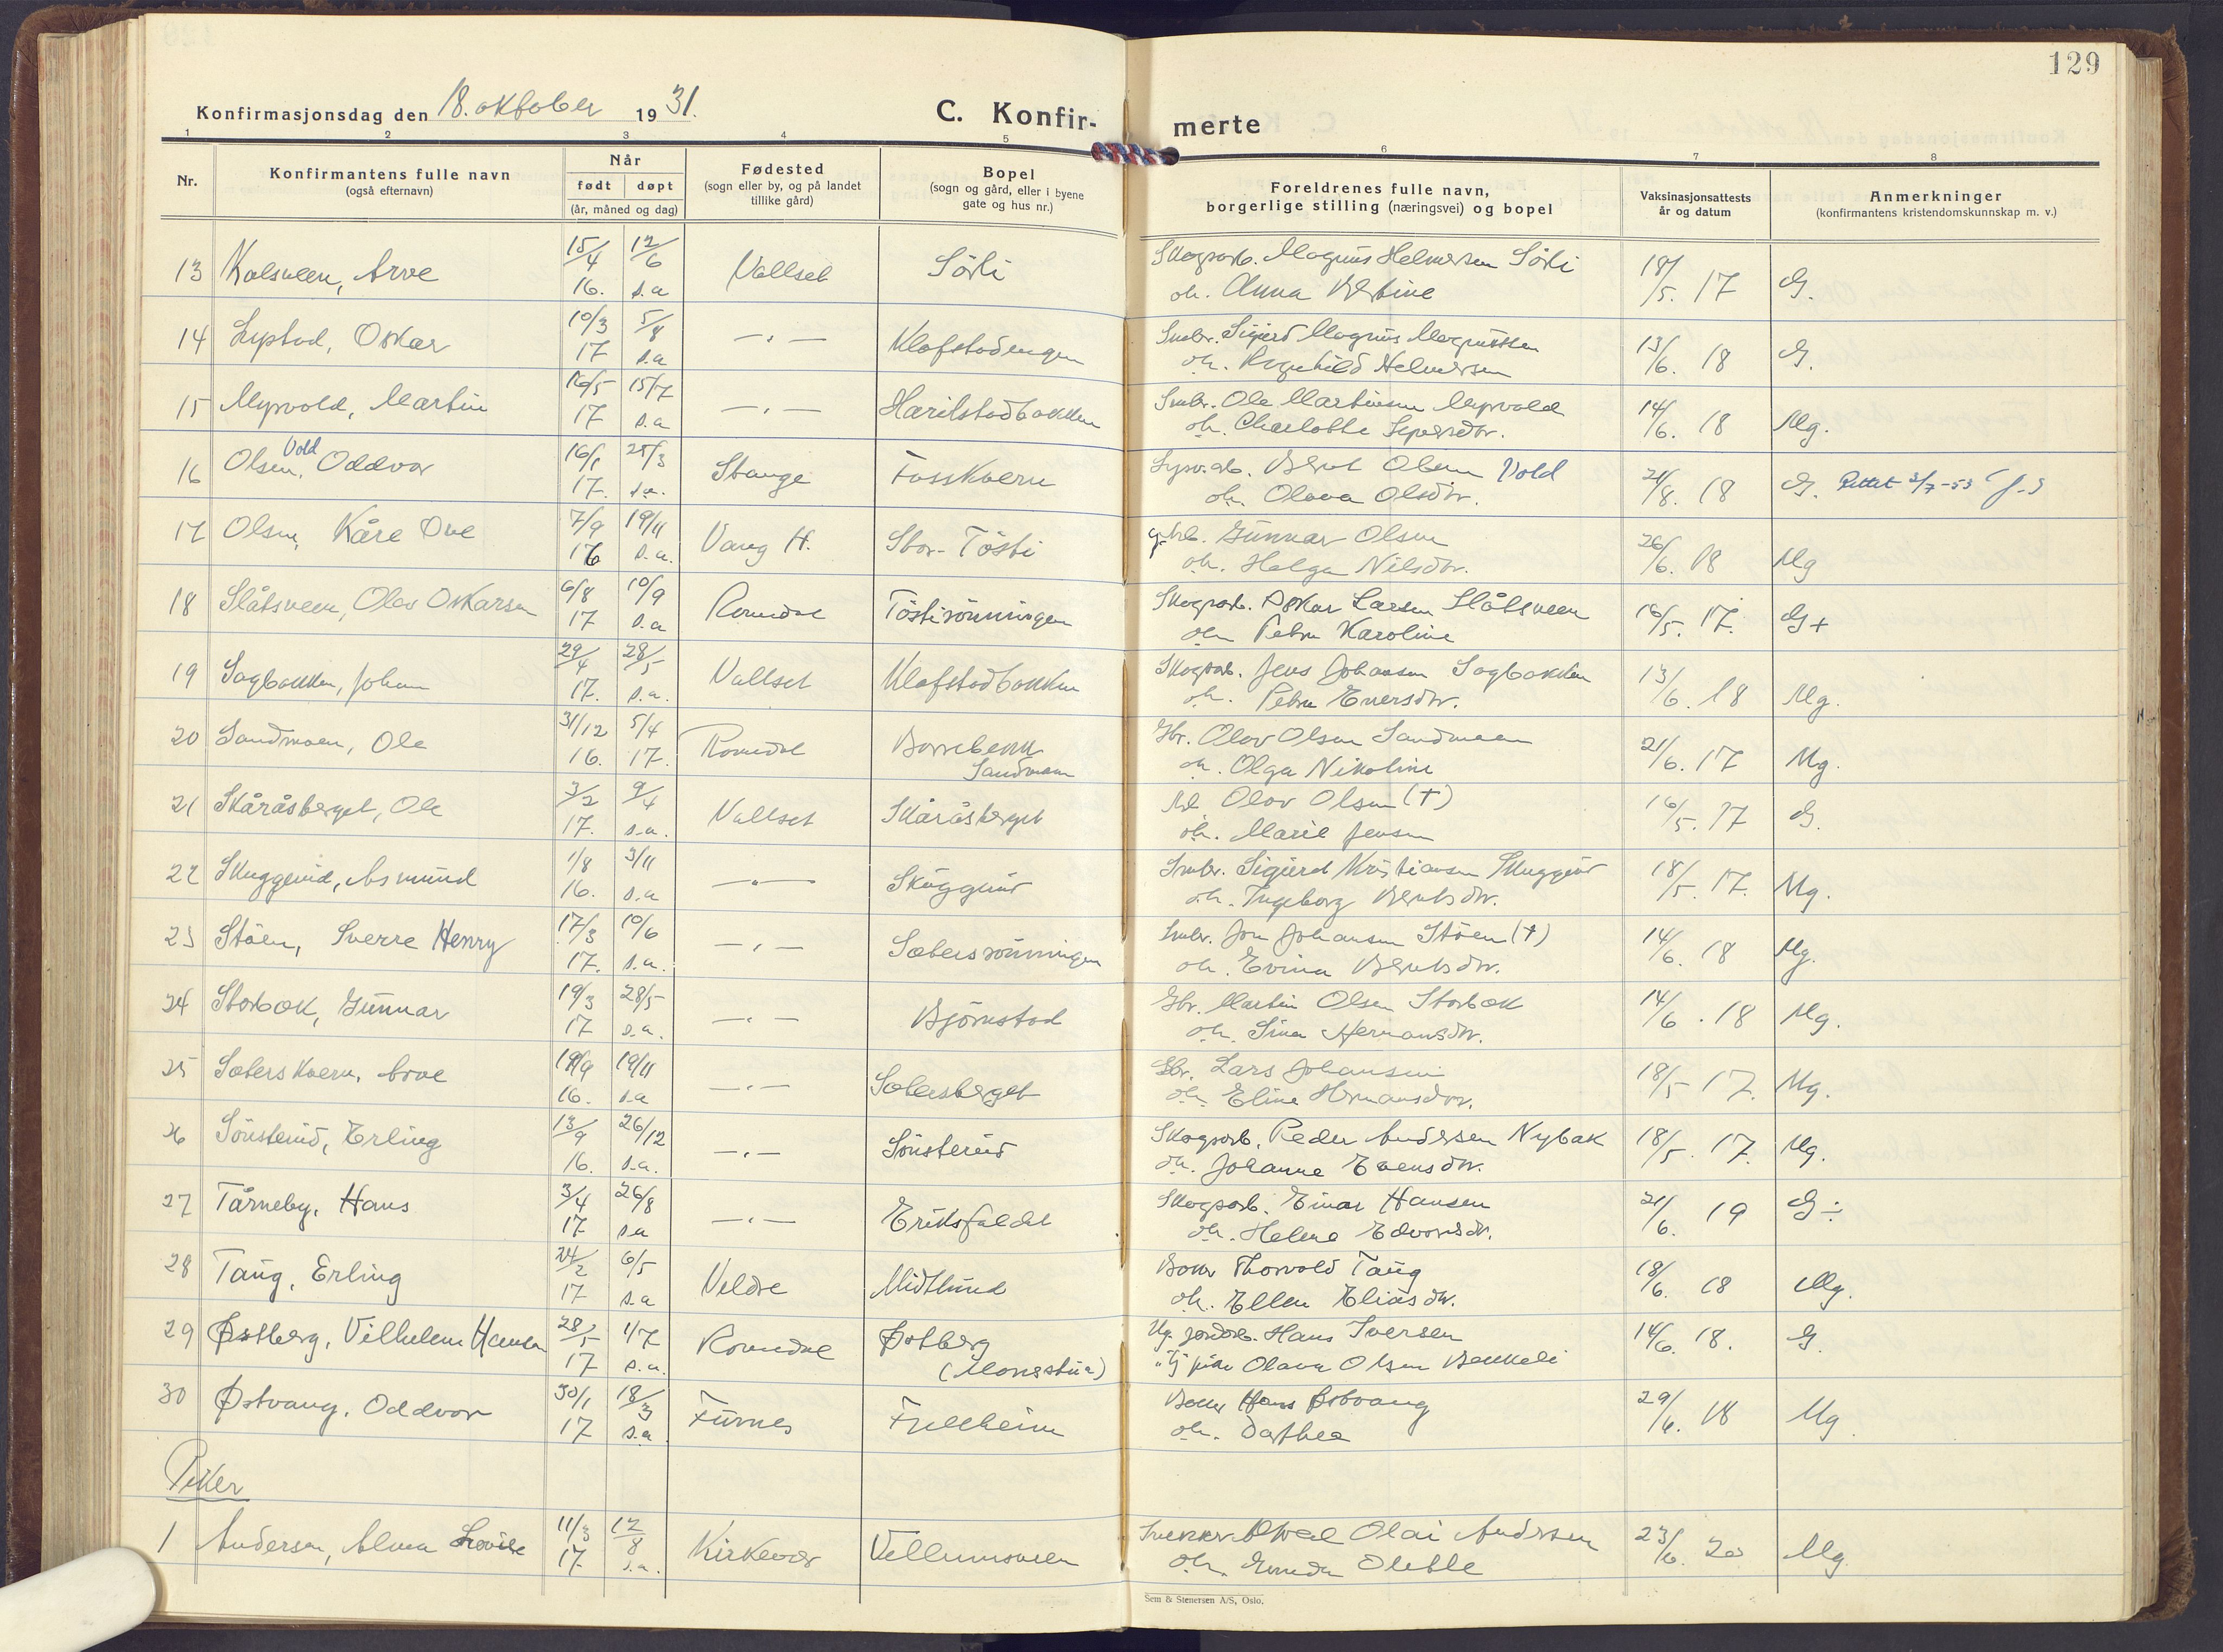 129
Konfirmasjonsdag den 18. oktober 1931.
C. Konfir-
merte
1 2 3 4 5 6 7 8
Nr.
Konfirmantens fulle navn
(også efternavn)
Når
født døpt
(år, måned og dag)
Fødested
(sogn eller by, og på landet
tillike gård)
Bopel
(sogn og gård, eller i byene
gate og hus nr.)
Foreldrenes fulle navn,
borgerlige stilling (næringsvei) og bopel
Vaksinasjonsattests
år og datum
Anmerkninger
(konfirmantens kristendomskunnskap m. v.)
13 Kolsveen, Arve 15/4 16. 12/6 s.a Vallset Sörli
Skogsarb. Magnus Helmersen Sörli 18/5. 17 G.
oh. Anna
14 Lystad, Oskar 10/3 17 5/8 s.a —„— Klafstadengen
Smbr. Sigurd Magnus Magnussen 13/6. 18 G.
oh. Ragnhild Helmersen
15 Myrvold, Martin 16/5 17 15/7 s.a —„— Harilstadbakken
Smbr. Ole Martinsen Myrvold 14/6. 18 Mg.
oh. Charlotte
16 Olsen, Vold Oddvar 16/1 17. 25/3 s.a. Stange Fosskvern
Bernt Olsen Vold 21/8. 18 G. Rettet 2/7-53
oh. Olava Olsdtr.
17 Olsen, Kåre Ove 7/9 16 19/11 s.a. Vang H. Stor-Tösti
Gunnar Olsen 26/6. 18 Mg
oh. Helga Nilsdtr.
18 Slåtsveen, Olav Oskarsen 6/8 17 10/9 s.a Romedal Töstirönningen
Skogsarb. Oskar Larsen Slåtsveen 16/5. 17. G+
oh. Petra Karoline
19 Sagbakken, Johan 29/4 17. 28/5 s.a. Vallset Klafstadbakken
Skogsarb. Jens Johansen Sagbakken 13/6. 18 Mg.
oh. Petra Enersdtr.
20 Sandmoen, Ole 31/12 16. 5/4 17. Romedal
Sandmoen
Gbr. Olav Olsen Sandmoen 21/6. 17 Mg.
oh. Olga Nikoline
21 Skåråsberget, Ole 3/2 17. 9/4 s.a. Vallset Skåråsberget
Arb. Olav Olsen (†) 16/5. 17 G.
oh. Marie Jensen
22 Skuggerud, Asmund 1/8 16. 3/11 s.a —„— Skuggrud
Smbr. Sigurd Kristiansen Skuggrud 18/5. 17. Mg.
oh. Ingeborg Berntsdtr.
23 Stöen, Sverre Henry 17/3 17. 10/6 s.a. —„— Sætersrönningen
Smbr. Jon Johansen Stöen (†) 14/6. 18 Mg.
oh. Evina Berntsdtr.
24 Storbæk, Gunnar 19/3 17 28/5 s.a. —„— Björnstad
Gbr. Martin Olsen Storbæk 14/6. 18 Mg.
oh. Sina Hermansdtr.
25 Sæterskvern, Arve 19/9 16. 19/11 s.a —„— Sætersberget
Gbr. Lars Johansen 18/5 17. Mg.
oh. Eline Hermansdtr.
26 Sönsterud, Erling 13/9 16. 26/12 s.a. —„— Sönsterud
Skogsarb. Peder Andersen Nybak 18/5. 17. Mg.
oh. Johanne Evensdtr.
27 Tårneby, Hans 3/4 17 26/8 s.a —„— Eriksfaldet
Skogsarb. Einar Hansen 21/6. 19 G÷
oh. Helene Edvardsdtr.
28 Taug, Erling 24/2 17 6/5 s.a Veldre Midtlund
Thorvald Taug 18/6. 18 Mg.
oh. Ellen Eliasdtr.
29 Østberg, Vilhelm Hansen 28/5 17 1/7 s.a. Romedal Østberg
(Monsstua)
Ug. jordarb. Hans Iversen 14/6. 18. G.
pike Olava Olsen Bekkeli
30 Østvang, Oddvar 30/1 17 18/3 s.a. Furnes
Hans Østvang 29/6. 18 Mg.
oh. Dorthea
Piker
1 Andersen, Alma Lovise 11/3 17. 12/8 s.a. Kirkevær Vellumsveen
Snekker Olai Andersen 23/6. 20 Mg.
oh.
Sem & Stenersen A/S, Oslo.